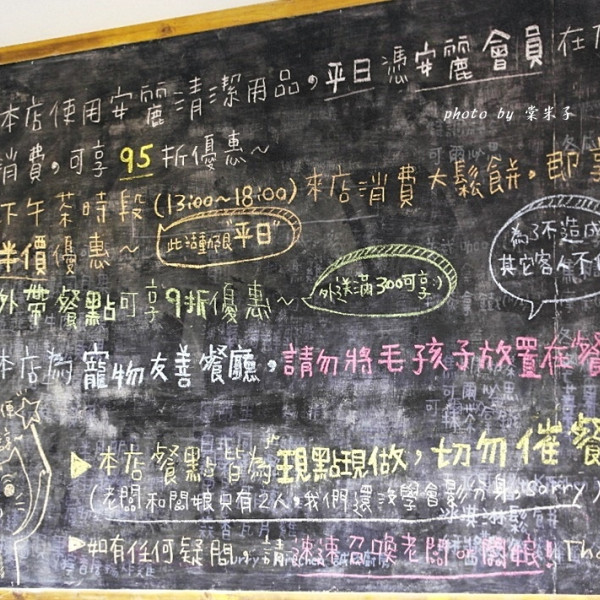 本店使用安麗清潔用品,平日憑安麗會員在
photo by 棠米子
消費,可享95折優惠~
下午茶時段(13:00~18:00)來店消費大鬆餅,即享
半價優惠~
此活動限"平日"
為了不造成
其它客人不
外帶餐點可享9折優惠~
外送滿300可享:)
本店為寵物友善餐廳,請勿將毛孩子放置在餐
▶本店餐點皆為現點現做,切勿催餐
(老闆和闆娘只有2人,我們還沒學會影分身,Sorry)
▶如有任何疑問,請速速召喚老闆or闆娘!Tha